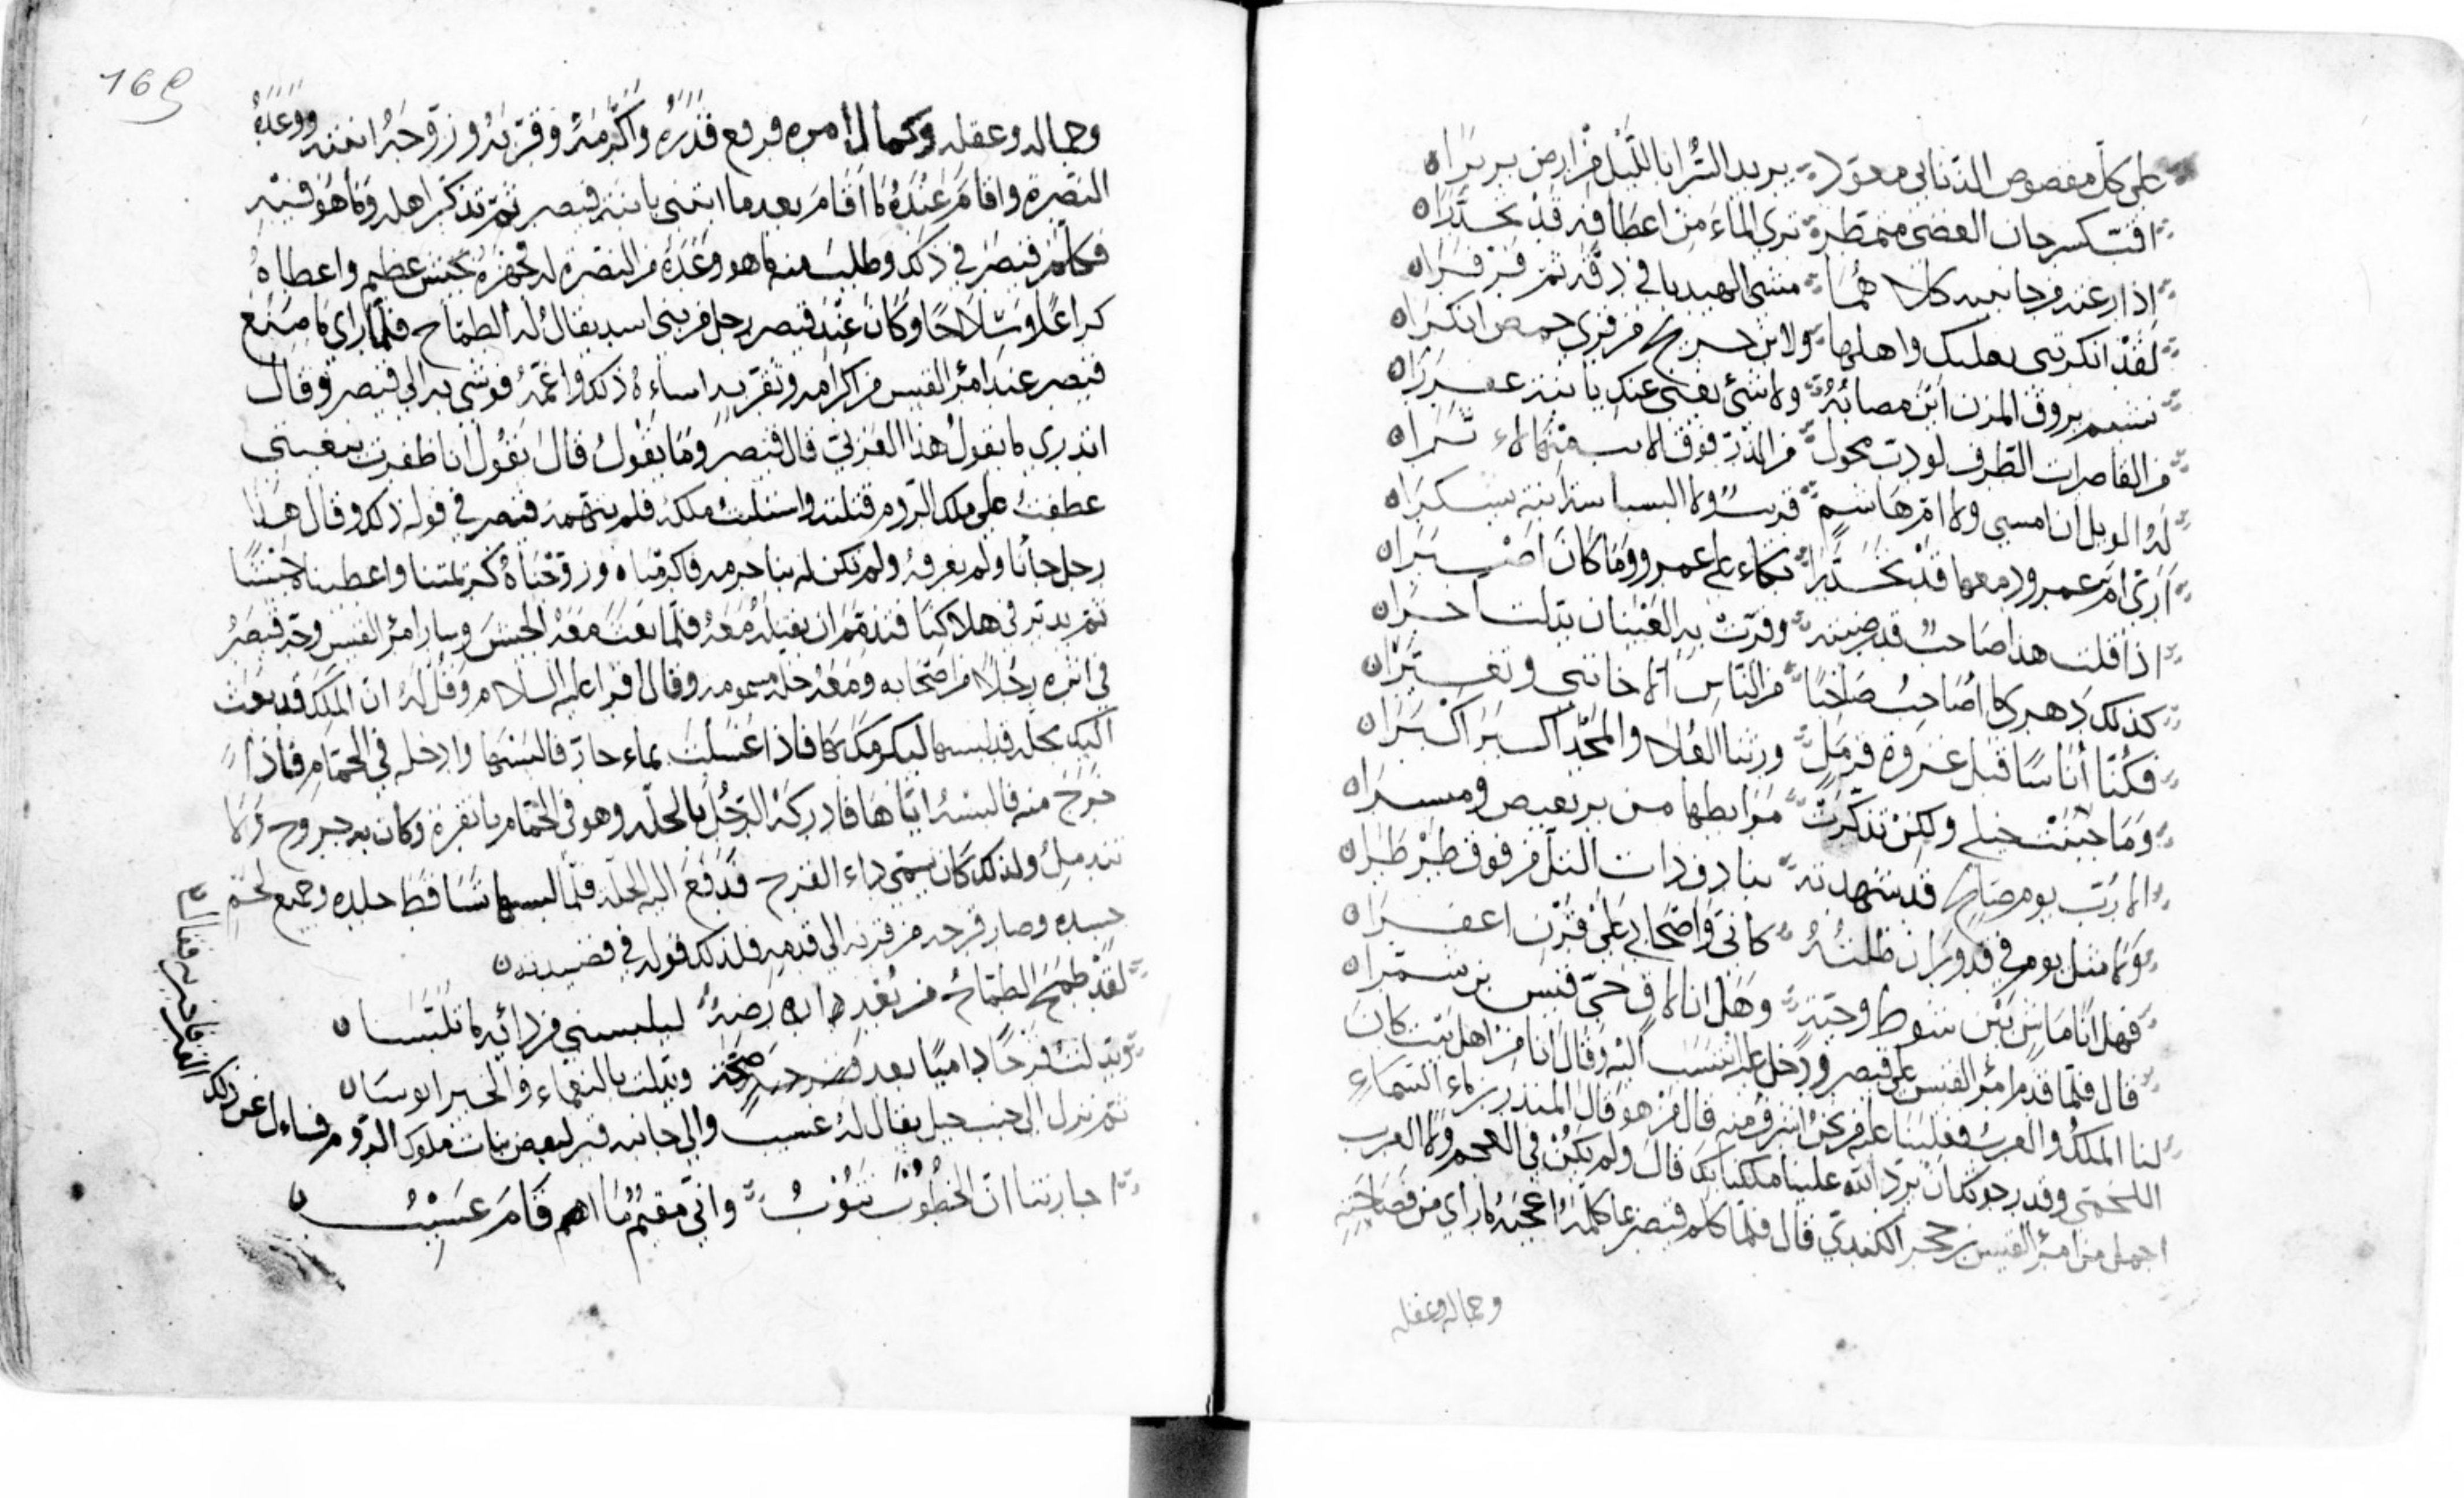 على كل مقصوص الذنابي معوّد بريد السّرا باللّيل من ارض بربرا
اقبّ كسرحان الغضى متمطرة ترى الماء من اعطافه قد تحدّرا
اذا رعته من جانبيه كلاهما مشى الهيدبا في دفه ثم فرفرا
لقد انكرتني بعلبك واهلها ولابن جريج من قرى حمص انكرا
نشيم بروق المزن اين مصابُهُ ولا شئ يغني عنك يا بنة عفزرا
من القاصرات الطرف لو دبّ محول من الذرّ فوق الاتب منها لاثرا
لهُ الويل ان امسى ولا امّ هاشم قريبٌ ولا البسباسة ابنة يشكرا
ارى امّ عمرو دمعها قد تحدّرا بكاء على عمرو وما كان اصبرا
اذا قلت هذا صاحبٌ قد رضيته وقرّت به العينان بدّلت اخرا
كذلك دهري ما اصاحب صاحبًا من النّاس الا خانني وتغيّرا
فكُنّا أناسًا قبل غزوة قرمل ورثنا العُلا والمجد اكبر اكبرا
وما جبنت خيلي ولكن تذكّرت مرابطها من بربعيص وميسرا
الا رُبّ يوم صالح قد شهدته بتاذف ذات التل من فوق طرطرا
ولا مثل يوم في قدوران ظلتُهُ كانّي واصحابي على قرن اعفرا
فهل انا ماش بين شوط وحيّة وهل انا لاق حيّ قيس بن شمّرا
قال فلمّا قدم امرُ القيس على قيصر ودخل عليه انتسب اليه وقال انا من اهل بيت كان
لنا الملكُ والعرب فغلبنا عليه من نحن اشرف منه قال من هو قال المنذر بن ماء السّماء
اللخميّ وقد رجوتك ان تردّ الله علينا ملكنا بك قال ولم يكن في العجم ولا العرب
اجمل من امرُ القيس بن حجر الكنديّ قال فلمّا كلم قيصر بما كلمهُ اعجبهُ ما راى من فصاحته
وجماله وعقله
169
وجماله وعقله وكمال امره فرفع قدرهُ واكرمهُ وقرّبهُ وزوّجهُ ابنته ووعدهُ
النصرة واقام عندهُ ما اقام بعد ما ابتنى بابنة قيصر ثمّ تذكّر اهله وما هو فيه
فكلّم قيصر في ذلك وطلب منه ما هو وعدهُ من النصرة له فجهزهُ بجيش عظيم واعطاهُ
كراعًا وسلاحًا وكان عند قيصر رجل من بني اسد يقالُ له الطمّاح فلمّا راى ما صنع
قيصر عند امرُ القيس من اكرامه وتقريبه اساءهُ ذلك واغمّهُ فوشى به الى قيصر وقال
اتدري ما يقولُ هذا العربيّ قال قيصر وما يقولُ قال يقُول انا ظفرت ببغيتي
عطفتُ على ملك الرّوم فقتلته واستلبتُ ملكهُ فلم يتهمه قيصر في قوله ذلك وقال هذا
رجل جأنا ولم نعرفهُ ولم تكن له بنا حرمه فاكرمناه وزوّجناهُ كريمتنا واعطيناهُ جيشًا
ثم يدبّر في هلاكنا فندم ان بعثه معهُ فلمّا بعث معهُ الجيش وسار امرُ القيس وجّه قيصرُ
في اثره رجُلًا من اصحابه ومعهُ حلّه مسمومه وقال اقرا عليه السلام وقُل لهُ انّ الملك قد بعث
اليك بحلّه قد لبسها ليكرمك بها فاذا اغتسلت بماء حارّ فالبسها وادخله في الحمّام فاذا
خرج منه فالبسهُ ايّاها فادركهُ الرّجُل بالحلّه وهو في الحمّام بانقرة وكان به جروح ولمّا
تندملُ ولذلك كان يسمّى ذاء القرح فدفع اليه الحلّه فلمّا لبسها تساقط جلده وجميع لحم
جسده وصار قرحه من قرنه الى قدمه فلذلك قوله في قصيدته
لقد طمح الطمّاحُ من بُعد ارضهُ ليلبسني من دائه ما تلبّسا
وبدّلتُ قرحًا داميًا بعد صحّة وبدّلت بالنعماء والخير ابوسا
ثم نزل الى جنب جبل يقال لهُ عسيب والى جانبه قبر لبعض بنات ملوك الرّوم فساءل عن ذلك
القبر فاخبر به فقال
اجارتنا انّ الخطُوب تنُوبُ وانّي مقيمُ ما اقام عسيبُ